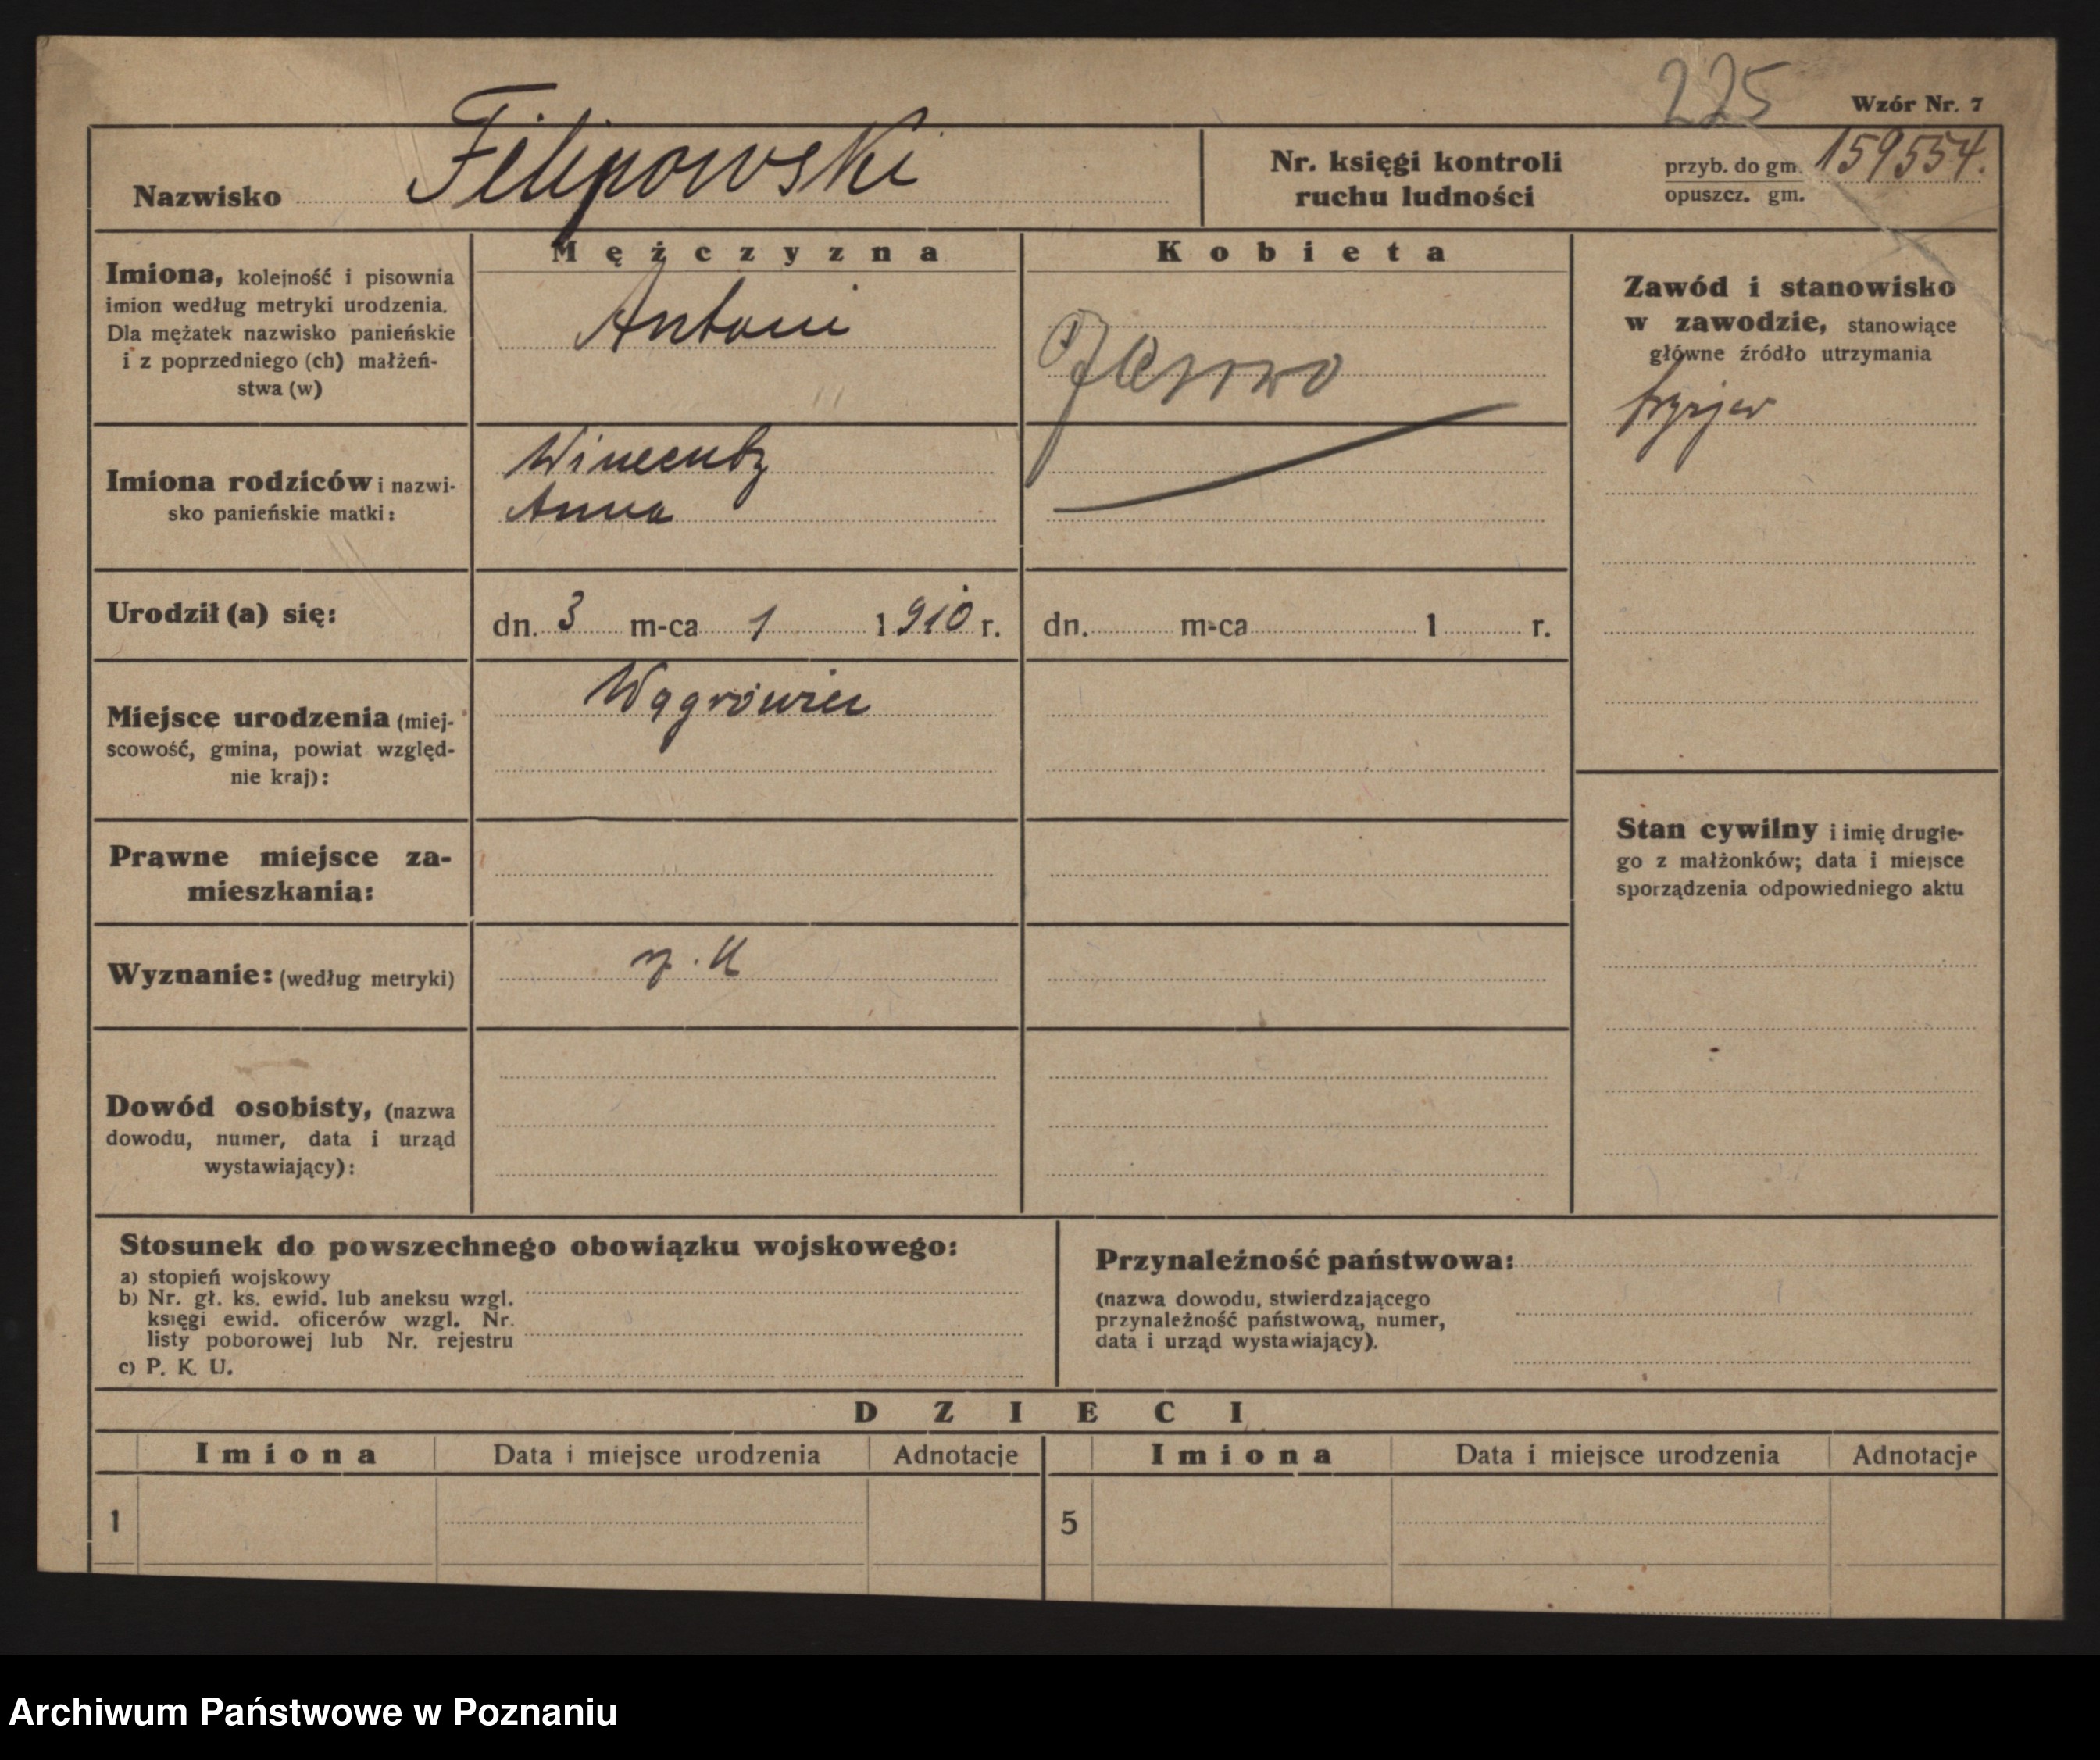 225
Wzór Nr. 7
Nazwisko Filipowski
Nr. księgi kontroli
ruchu ludności
przyb. do gm. 159554.
opuszcz. gm.
Mężczyzna
Kobieta
Imiona, kolejność i pisownia
imion według metryki urodzenia.
Dla mężatek nazwisko panieńskie
i z poprzedniego (ch) małżeń-
stwa (w)
Antoni
Zawód i stanowisko
w zawodzie, stanowiące
główne źródło utrzymania
fryzjer
Imiona rodziców i nazwi-
sko panieńskie matki:
Wincenty
Anna
Urodził (a) się:
dn. 3 m-ca 1 1910 r.
dn. m-ca 1 r.
Miejsce urodzenia (miej-
scowość, gmina, powiat względ-
nie kraj):
Wągrówiec
Stan cywilny i imię drugie-
go z małżonków; data i miejsce
sporządzenia odpowiedniego aktu
Prawne miejsce za-
mieszkania:
Wyznanie: (według metryki)
rz. K
Dowód osobisty, (nazwa
dowodu, numer, data i urząd
wystawiający):
Stosunek do powszechnego obowiązku wojskowego:
a) stopień wojskowy
b) Nr. gł. ks. ewid. lub aneksu wzgl.
księgi ewid. oficerów wzgl. Nr.
listy poborowej lub Nr. rejestru
c) P. K. U.
Przynależność państwowa:
(nazwa dowodu, stwierdzającego
przynależność państwową, numer,
data i urząd wystawiający).
DZIECI
Imiona Data i miejsce urodzenia Adnotacje Imiona Data i miejsce urodzenia Adnotacje
1 5
Archiwum Państwowe w Poznaniu